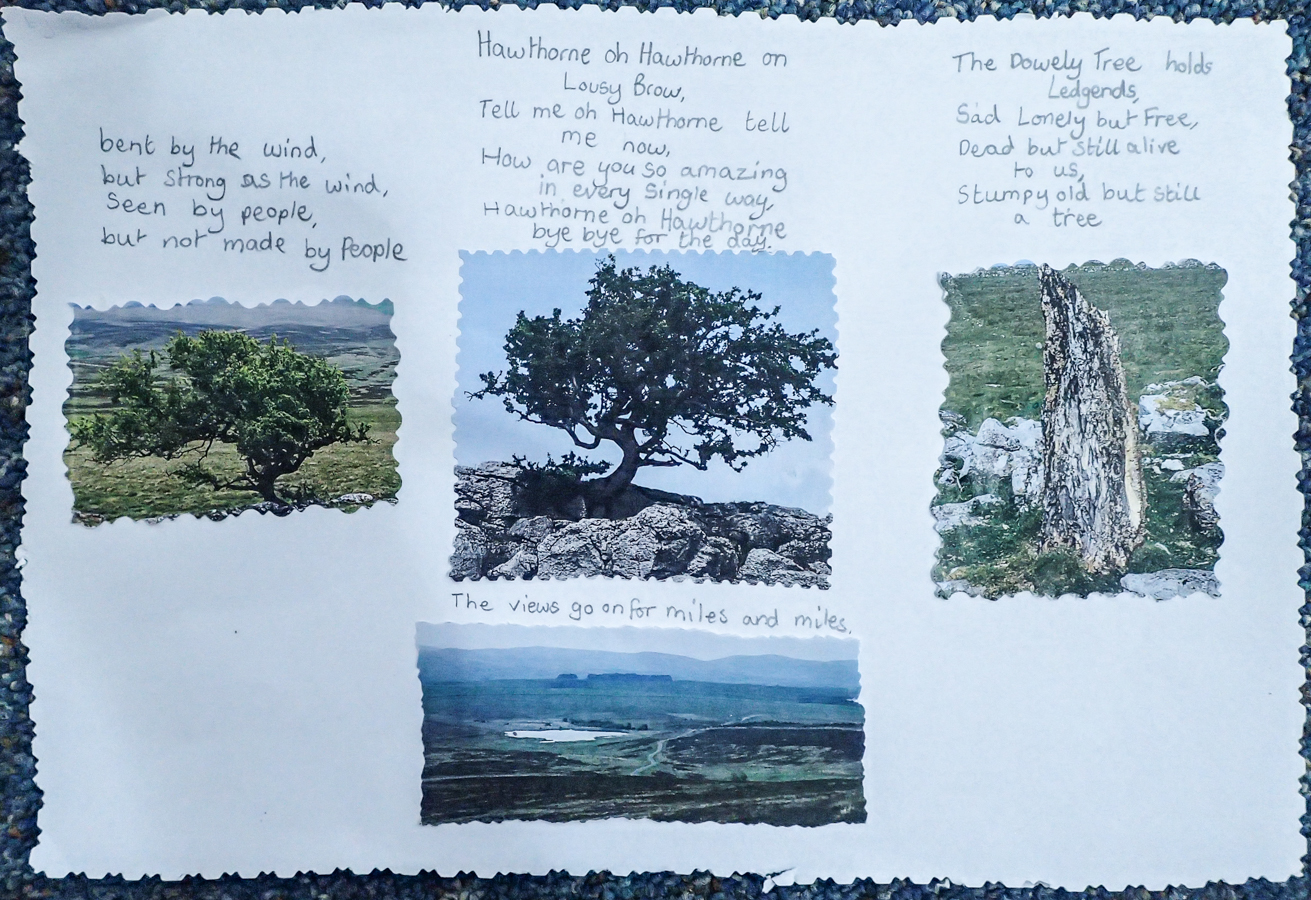 bent by the wind,
but strong as the wind,
Seen by people,
but not made by People
Hawthorne oh Hawthorne on
Lousy Brow,
Tell me oh Hawthorne tell
me now,
How are you so amazing
in every single way,
Hawthorne oh Hawthorne
bye bye for the day.
The Dowely Tree holds
Ledgends,
Sad Lonely but Free,
Dead but still alive
to us,
Stumpy old but still
a tree
The views go on for miles and miles.